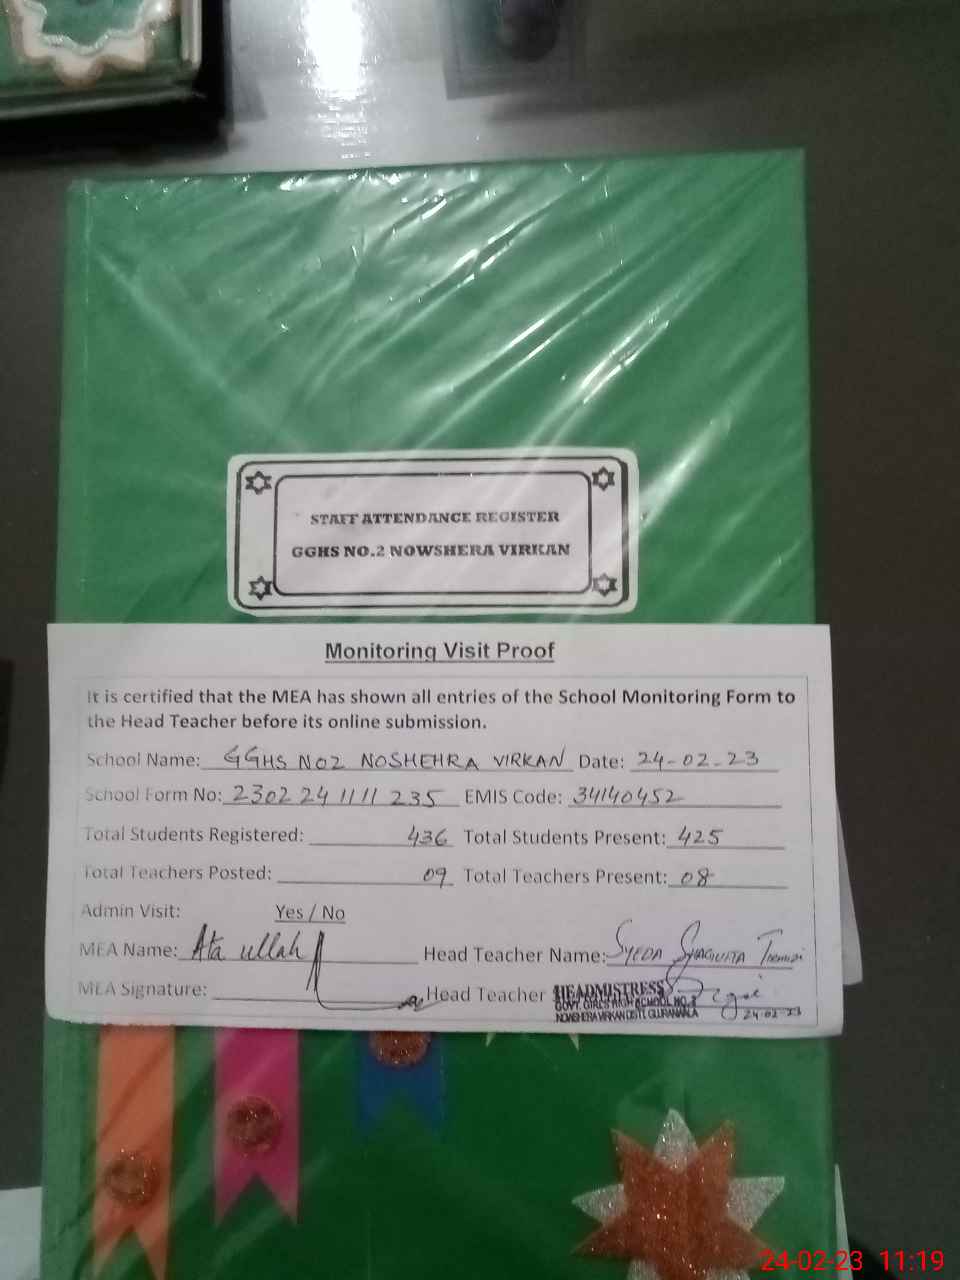 STAFF ATTENDANCE REGISTER
GGHS NO.2 NOWSHERA VIRKAN
Monitoring Visit Proof
It is certified that the MEA has shown all entries of the School Monitoring Form to
the Head Teacher before its online submission.
School Name: GGHS NO2 NOSHEHRA VIRKAN Date: 24-02-23
School Form No: 2302 24 1111 235 EMIS Code: 34140452
Total Students Registered: 436 Total Students Present: 425
Total Teachers Posted: 09 Total Teachers Present: 08
Admin Visit: Yes / No
MEA Name: Ata ullah Head Teacher Name: SYEDA
MEA Signature: Head Teacher
HEADMISTRESS
GOVT. GIRLS HIGH SCHOOL NO.2
NOWSHERA VIRKAN DISTT. GUJRANWALA
24-02-23
24-02-23 11:19